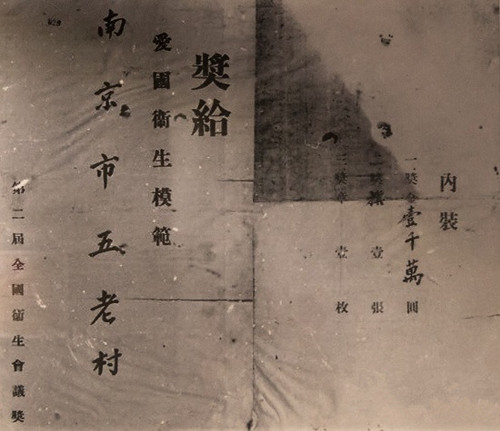 內裝
一獎金壹千萬圓
二獎狀壹張
三獎章壹枚
獎給
愛國衛生模範
南京市五老村
第二届全國衛生會議獎